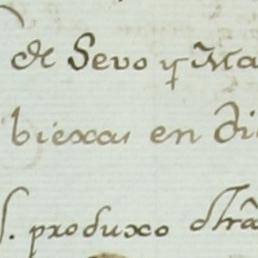 de Sevo y Ma
biexas en di
s. produxo dhã